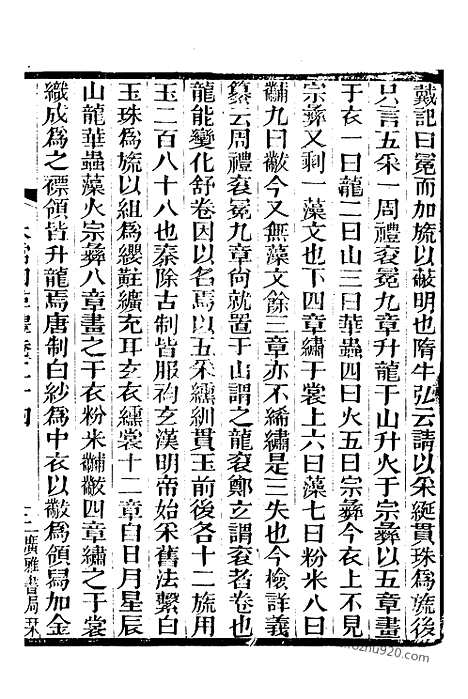 戴記曰冕而加旒以蔽明也隋牛弘云請以采綖貫珠爲旒後
只言五采一周禮袞冕九章升龍于山升火于宗彝以五章畫
于衣一曰龍二曰山三曰華蟲四曰火五曰宗彝今衣上不見
宗彝又剩一藻文也下四章繡于裳上六曰藻七曰粉米八曰
黼九曰黻今又無藻文餘三章亦不絺繡是三失也今檢詳義
纂云周禮袞冕九章何就置于山謂之龍袞鄭玄謂袞者卷也
龍能變化舒卷因以名焉以五采纁紃貫玉前後各十二旒用
玉二百八十八也秦除古制皆服袀玄漢明帝始采舊法繫白
玉珠爲旒以組爲纓黈纊充耳玄衣纁裳十二章自日月星辰
山龍華蟲藻火宗彝八章畫之于衣粉米黼黻四章繡之于裳
織成爲之褾領皆升龍焉唐制白紗爲中衣以黻爲領焉加金
廣雅書局栞